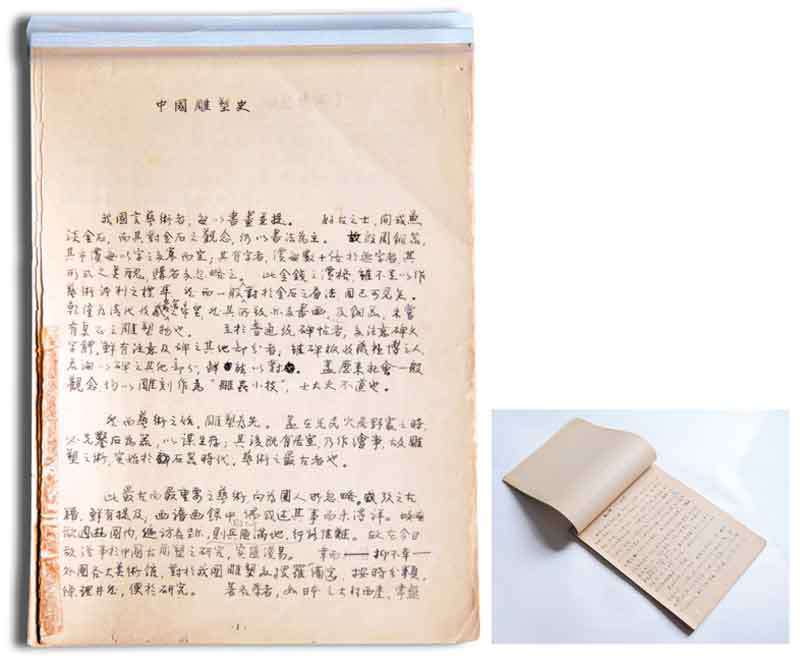 中國雕塑史
我國言藝術者，每以書畫並提。好古之士，間或兼
談金石，而其對金石之觀念，仍以書法為主。故殷周銅器，
其市價每以字之多寡而定；其有字者，價每數十倍於無字者，其
形式之美醜，購者多忽略之。此金錢之價格，雖不足以作
藝術評判之標準，然而一般人對於金石之看法，固已可見矣。
乾隆為清代收藏最富之帝皇，然其所致亦多書畫，及銅器，未嘗
有真正之雕塑物也。至於普通玩碑帖者，多注意碑文
字體，鮮有注意及碑之其他部分者；雖碑板收藏極博之人，
若詢以碑之其他部分，鮮能以對。盖歷來社會一般
觀念，均以雕刻作為“雕蟲小技”，士大夫不道也。
然而藝術之始，雕塑為先。盖在先民穴居野處之時，
必先鑿石為器，以謀生存；其後既有居室，乃作繪事，故雕
塑之術，實始於石器時代，藝術之最古者也。
此最古而最重要之藝術，向為國人所忽略。考之古
籍，鮮有提及；画譜画錄中偶或述其事而未得詳。
國內，遍訪名跡，則兵匪滿地，行路艱難。故在今日
欲從事於中國古雕塑之研究，實匪淺易。幸而——抑不幸——
外國各大美術館，對於我國雕塑多搜羅完備，按時分類，
條理井然，便於研究。著名學者，如日本之大村西崖，常盤
·1·